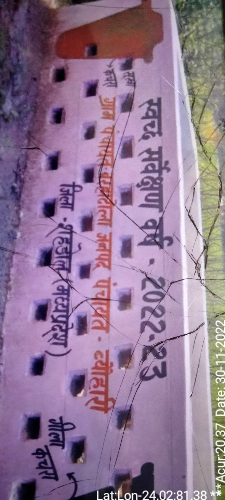 सूखा
कचरा
स्वच्छ सर्वेक्षण वर्ष - 2022-23
ग्राम पंचायत जनपद पंचायत - ब्यौहारी
जिला - शहडोल (मध्यप्रदेश)
गीला
कचरा
Lat:Lon-24.02:81.38 **
**Acur:20.37 Date: 30-11-2022